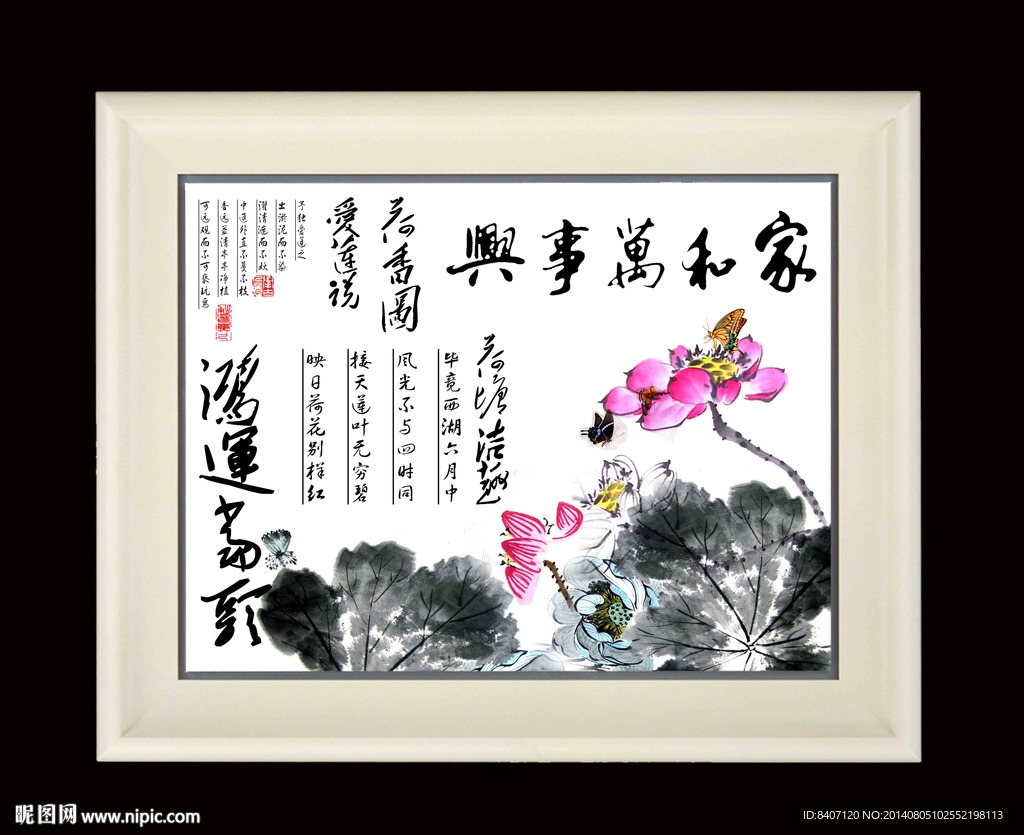 家和萬事興
荷塘洁趣
毕竟西湖六月中
风光不与四时同
接天莲叶无穷碧
映日荷花别样红
荷香圖
愛蓮说
予独爱莲之
出淤泥而不染
濯清涟而不妖
中通外直不蔓不枝
香远益清亭亭净植
可远观而不可亵玩焉
鴻運當頭
昵图网 www.nipic.com
ID:8407120 NO:20140805102552198113